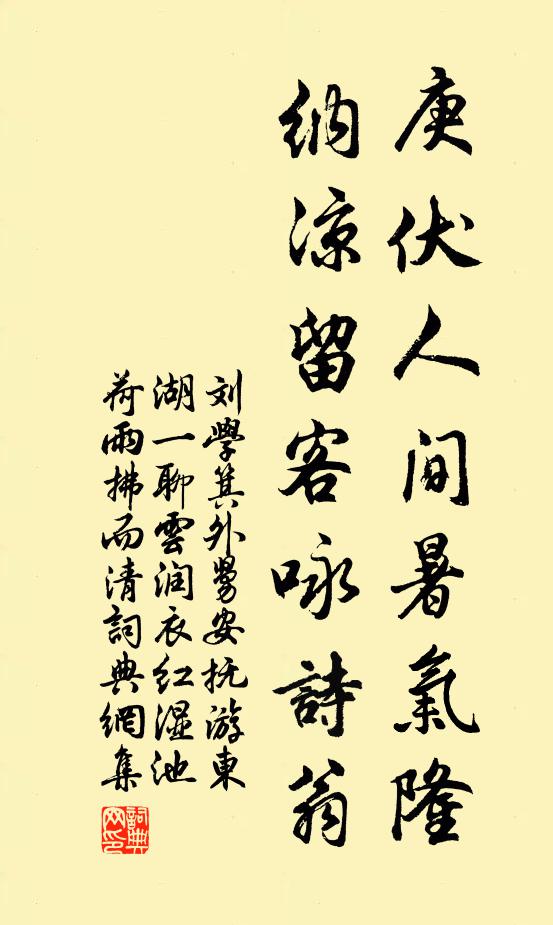 庚伏人间暑氣隆
納涼留客咏詩翁
刘學箕外舅安抚游東
湖一聊雲润衣红湿池
荷雨拂面清詞典網集
詞典网印